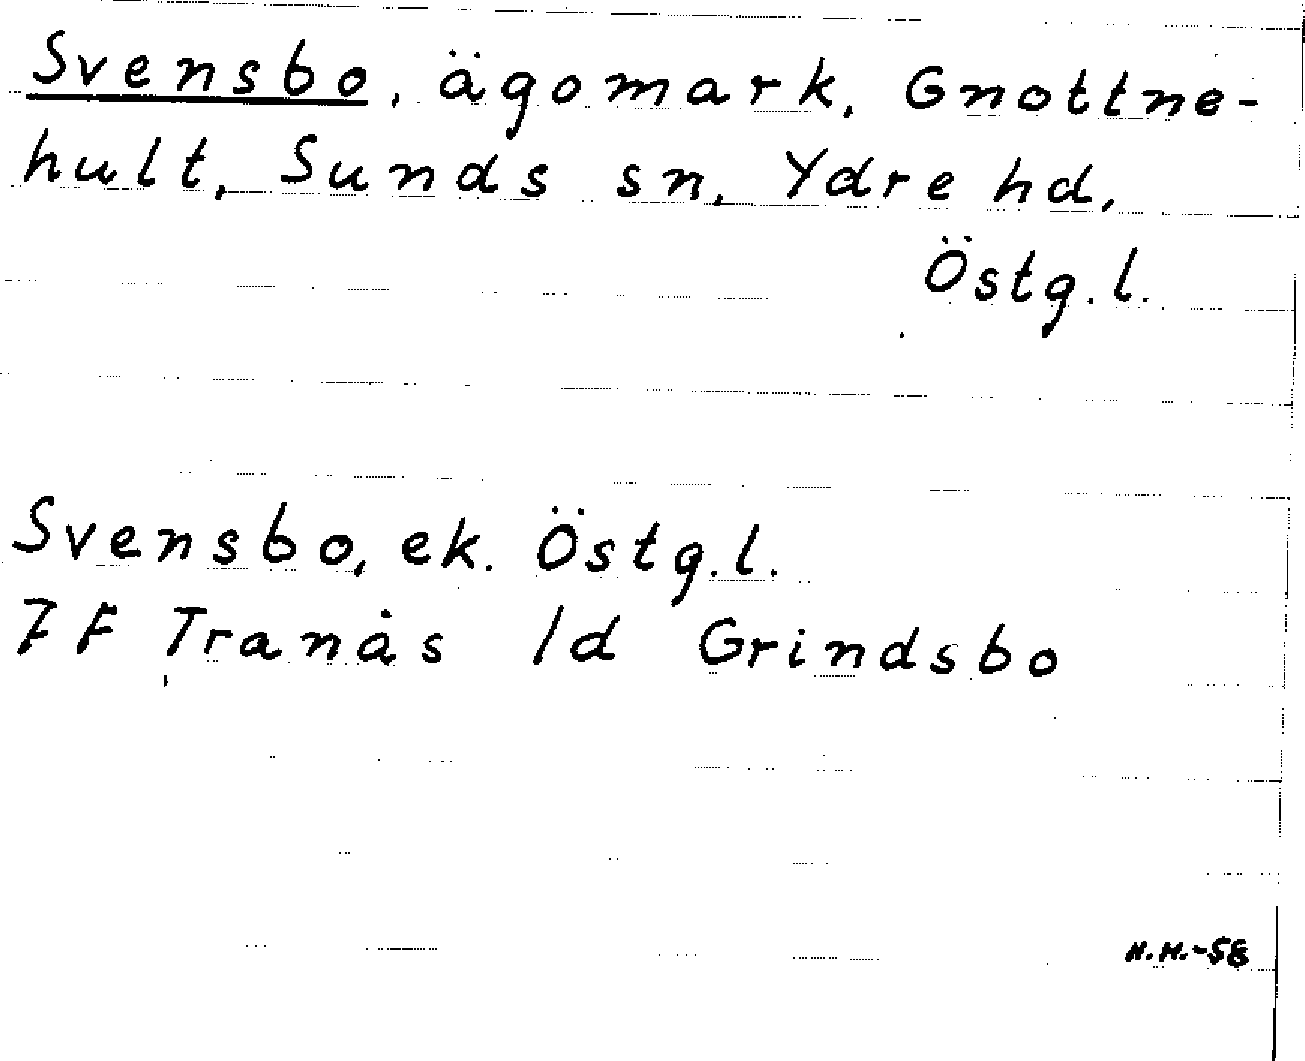 Svensbo, ägomark, Gnottne-
hult, Sunds sn, Ydre hd,
Östg.l.
Svensbo, ek. Östg.l.
7F Tranås 1d Grindsbo
H.H.-58